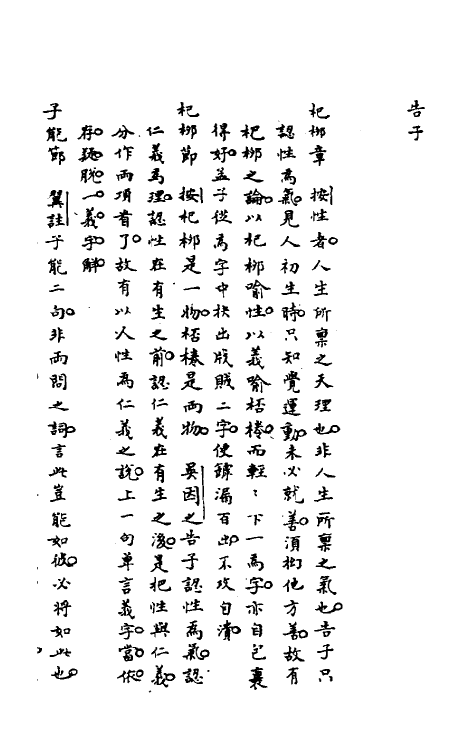 告子
杞柳章　按性者人生所稟之天理也非人生所稟之氣也告子只
認性為氣見人初生時只知覺運動未必就善須樹他方善故有
杞柳之論以杞柳喻性以義喻桮棬而輕〻下一為字亦自包裹
得好孟子從為字中抉出戕賊二字便罅漏百出不攻自潰
杞柳節　按杞柳是一物桮棬是兩物　吳因之告子認性為氣認
仁義為理認性在有生之前認仁義在有生之後是把性與仁義
分作兩項看了故有以人性為仁義之說上一句單言義字當依
存疑脫一義字解
子能節　翼註子能二句非兩問之詞言此豈能如彼必將如此也